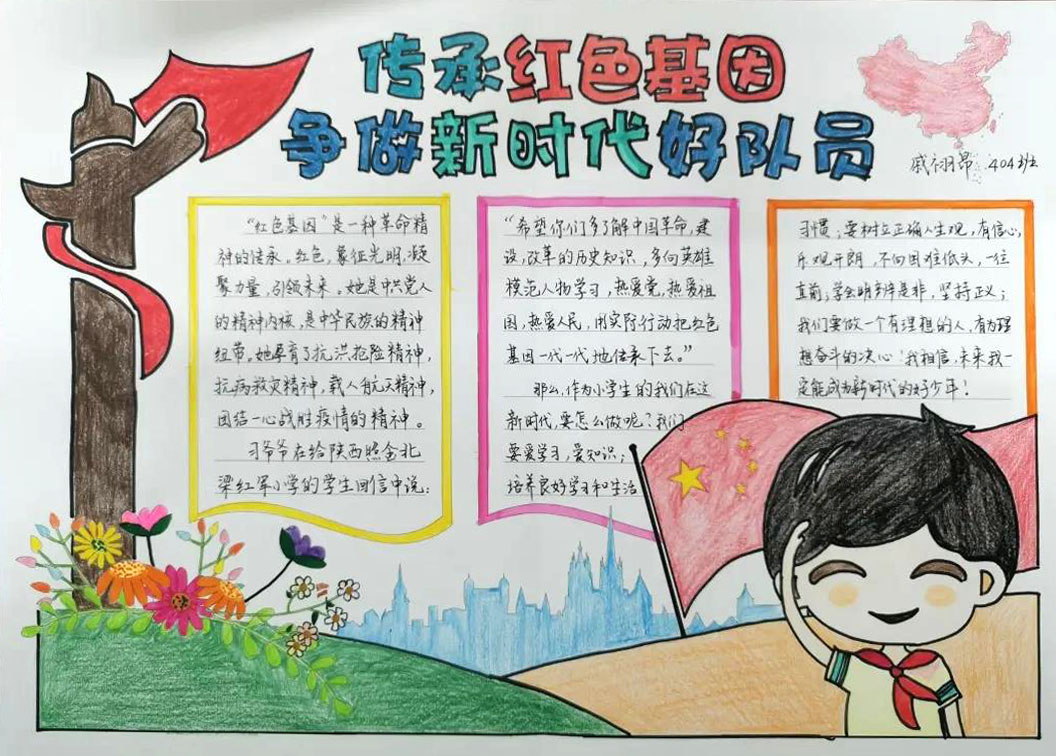 传承红色基因
争做新时代好队员
戚栩昂 404班
“红色基因”是一种革命精
神的传承。红色，象征光明，凝
聚力量，引领未来。她是中共党人
的精神内核，是中华民族的精神
纽带。她孕育了抗洪抢险精神，
抗病救灾精神，载人航天精神，
团结一心战胜疫情的精神。
习爷爷在给陕西照金北
梁红军小学的学生回信中说：
“希望你们多了解中国革命，建
设，改革的历史知识，多向英雄
模范人物学习，热爱党，热爱祖
国，热爱人民，用实际行动把红色
基因一代一代地传承下去。”
那么，作为小学生的我们在这
新时代，要怎么做呢？我们
要爱学习，爱知识；
培养良好学习和生活
习惯；要树立正确人生观，有信心，
乐观开朗，不向困难低头，一往
直前；学会明辨是非，坚持正义；
我们要做一个有理想的人，有为理
想奋斗的决心！我相信，未来我一
定能成为新时代的好少年！